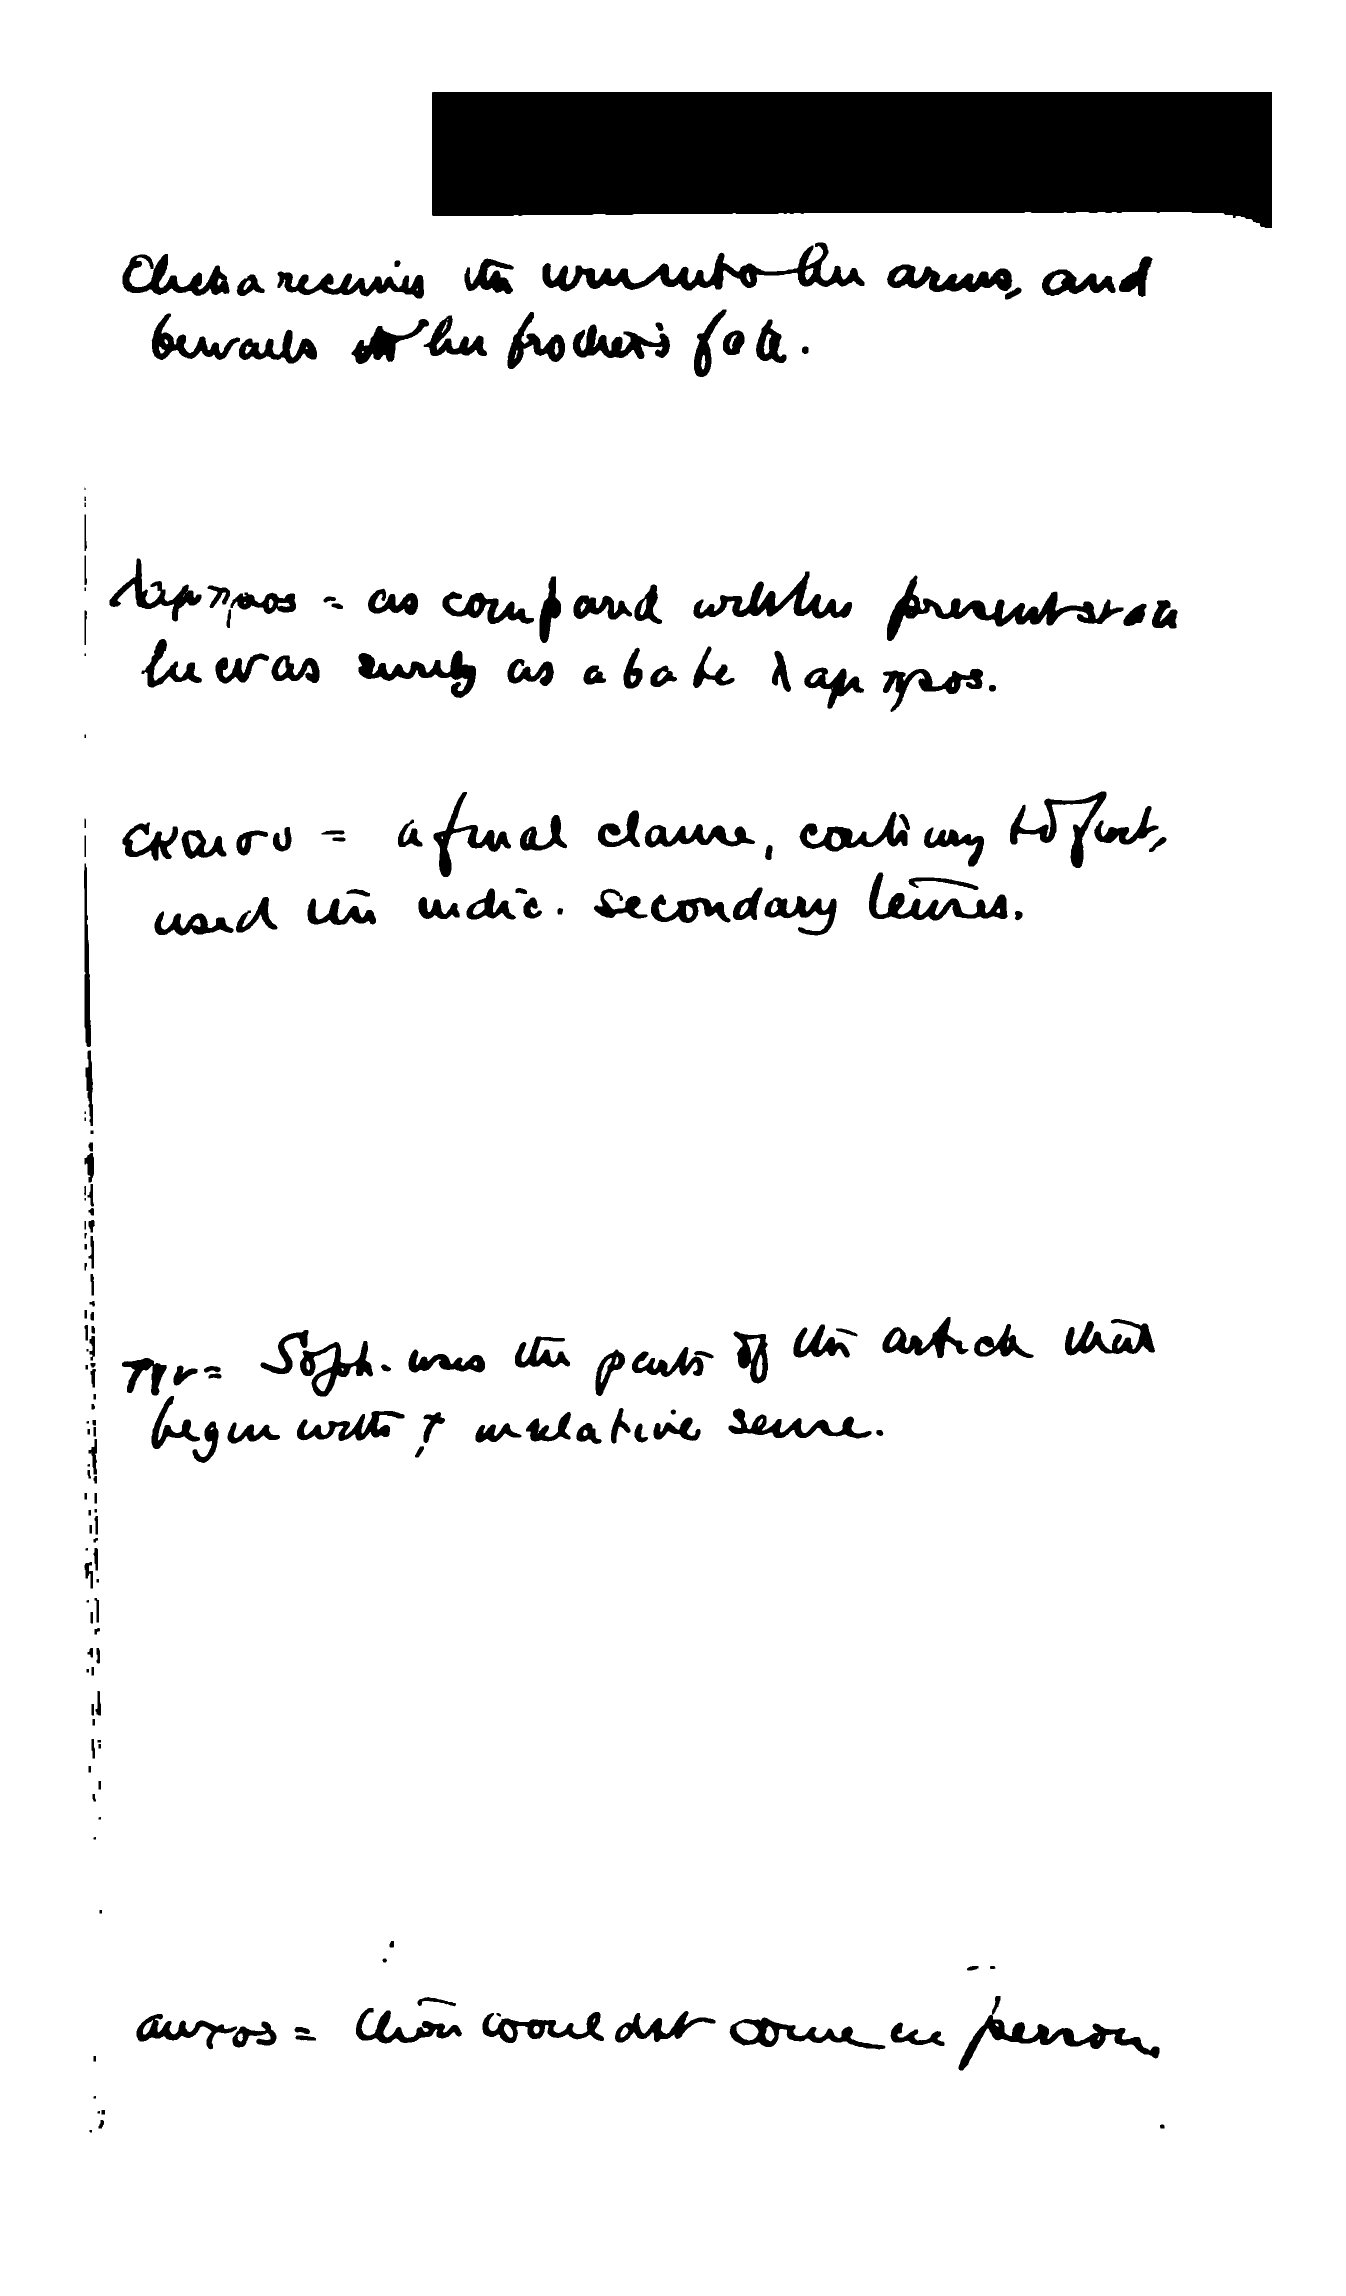 Electra receives the urn into her arms, and
bewails her brother's fate.
λαμπρος = as compared with his present state
he was surely as a babe λαμπρος.
εκεισο = a final clause, contrary to fact,
used the indic. secondary tenses.
την = Soph. uses the parts of the article that
begin with τ in relative sense.
αυτος = thou wouldst come in person.